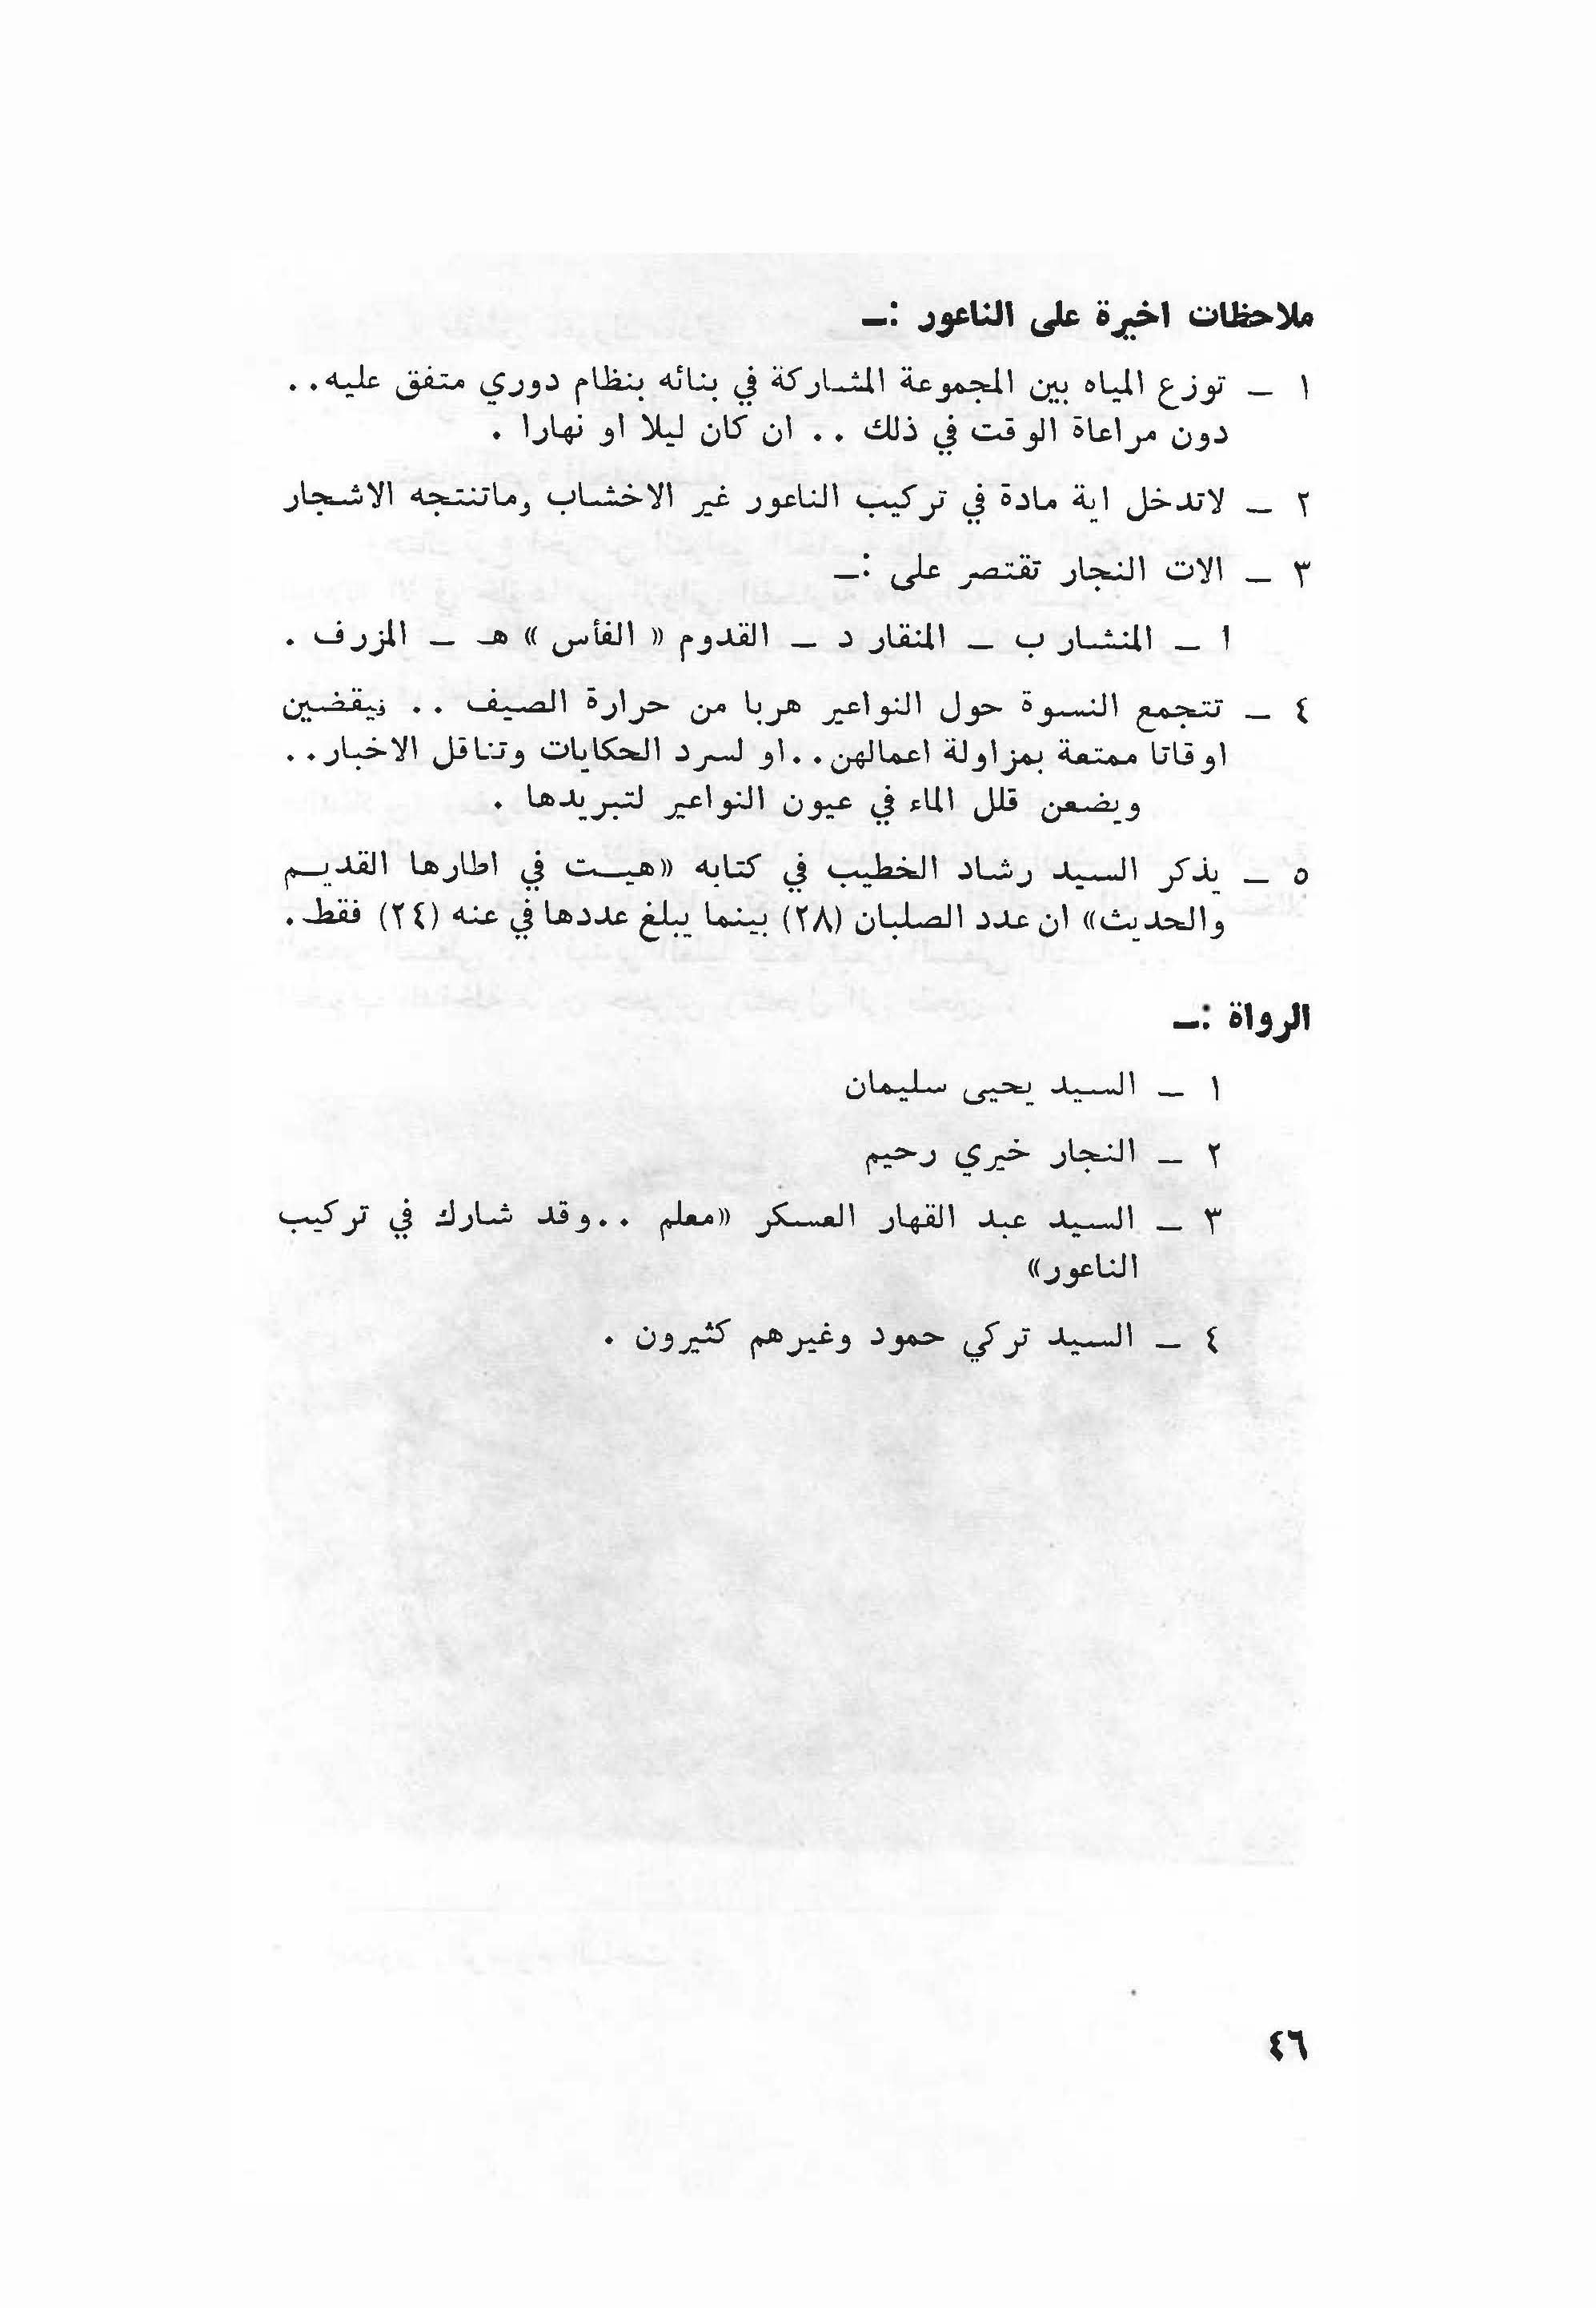 ملاحظات اخيرة على الناعور :ـ
١ ـ توزع المياه بين المجموعة المشاركة في بنائه بنظام دوري متفق عليه..
دون مراعاة الوقت في ذلك .. ان كان ليلا او نهارا .
٢ ـ لاتدخل اية مادة في تركيب الناعور غير الاخشاب وماتنتجه الاشجار
٣ ـ الات النجار تقتصر على :ـ
ا ـ المنشار ب ـ المنقار د ـ القدوم « الفأس » هـ ـ المزرف .
٤ ـ تتجمع النسوة حول النواعير هربا من حرارة الصيف .. فيقضين
اوقاتا ممتعة بمزاولة اعمالهن..او لسرد الحكايات وتناقل الاخبار..
ويضعن قلل الماء في عيون النواعير لتبريدها .
٥ ـ يذكر السيد رشاد الخطيب في كتابه «هيـــت في اطارها القديـــم
والحديث» ان عدد الصلبان (٢٨) بينما يبلغ عددها في عنه (٢٤) فقط.
الرواة :ـ
١ ـ السيد يحيى سليمان
٢ ـ النجار خيري رحيم
٣ ـ السيد عبد القهار العسكر «معلم ..وقد شارك في تركيب
الناعور»
٤ ـ السيد تركي حمود وغيرهم كثيرون .
٤٦